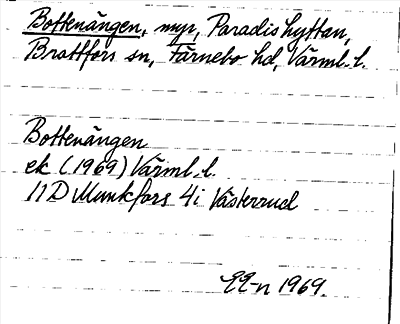 Bottenängen, myr, Paradishyttan,
Brattfors sn, Färnebo hd, Värml. l.
Bottenängen
ek (1969) Värml. l.
11D Munkfors 4i Västerrud
1969.